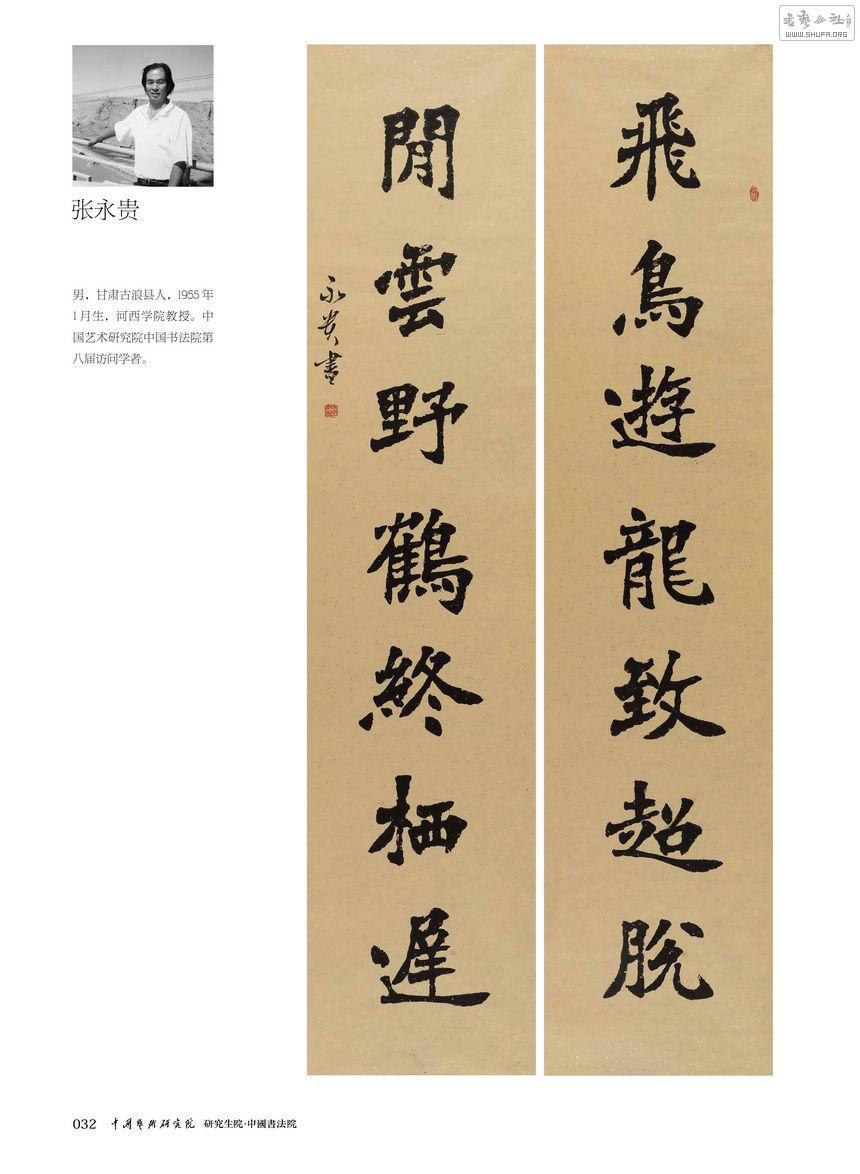 书艺公社
WWW.SHUFA.ORG
张永贵
男，甘肃古浪县人，1955 年
1 月生，河西学院教授。中
国艺术研究院中国书法院第
八届访问学者。
飛鳥遊龍致超脱
閒雲野鶴終栖遲
永贵書
032 中国艺术研究院 研究生院·中國書法院